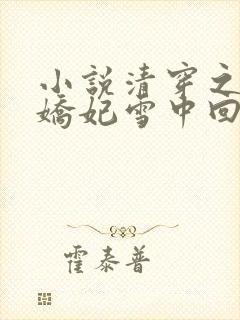 小説清穿之
嬌妃雪中回
霍泰普